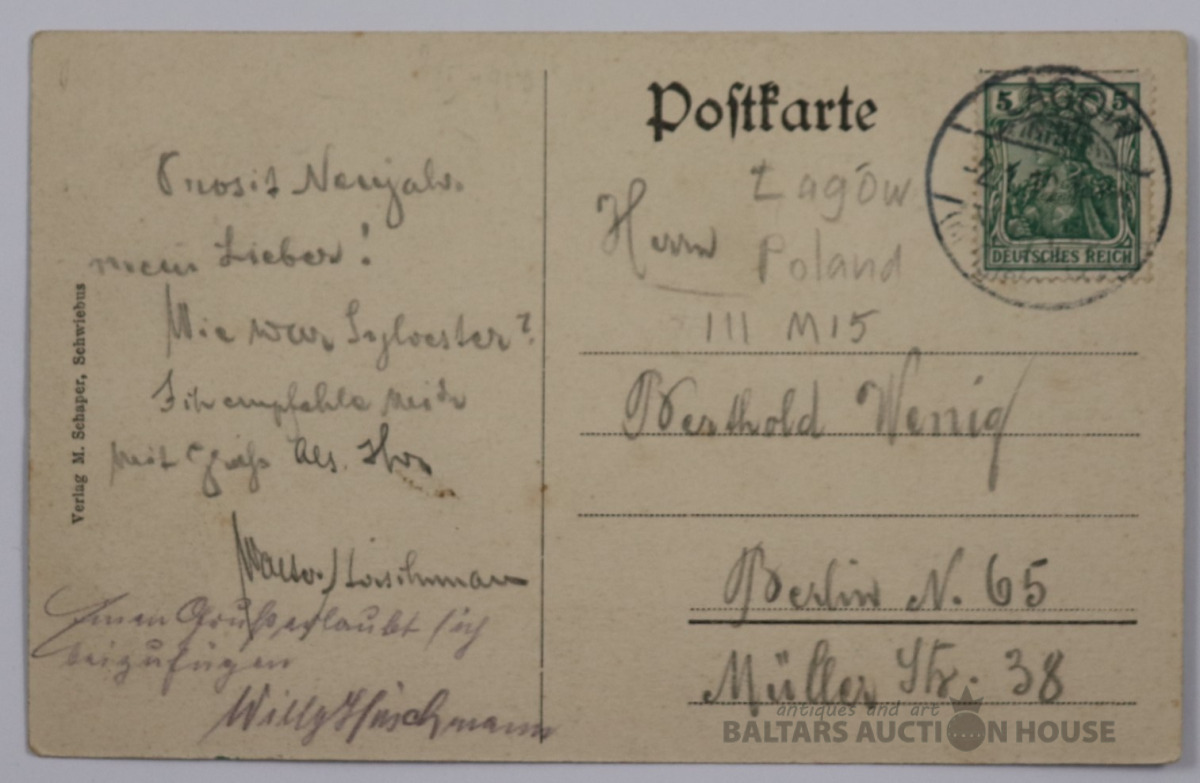 Postkarte
5 5
LAGOW
DEUTSCHES REICH
Łagów
Poland
III M15
Herrn
Berthold Wenig
Berlin N. 65
Müller Str. 38
Prosit Neujahr
mein Lieber!
Wie war Sylvester?
Ich empfehle mich
mit Gruß als Ihr
Walter Hirschmann
Einen Gruß erlaubt sich
beizufügen
Willy Hirschmann
Verlag M. Schaper, Schwiebus
antiques and art
BALTARS AUCTION HOUSE